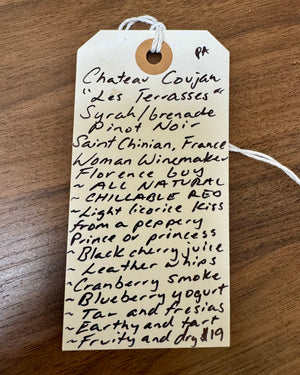 PA
Chateau Coujan
"Les Terrasses"
Syrah/Grenade
Pinot Noir
Saint Chinian, France
Woman Winemaker
Florence Guy
~ ALL NATURAL
~ CHILLABLE RED
~Light licorice kiss
from a peppery
Prince or princess
~Black cherry juice
~Leather whips
~Cranberry smoke
~Blueberry yogurt
~Tar and fresias
~Earthy and tart
~Fruity and dry $19